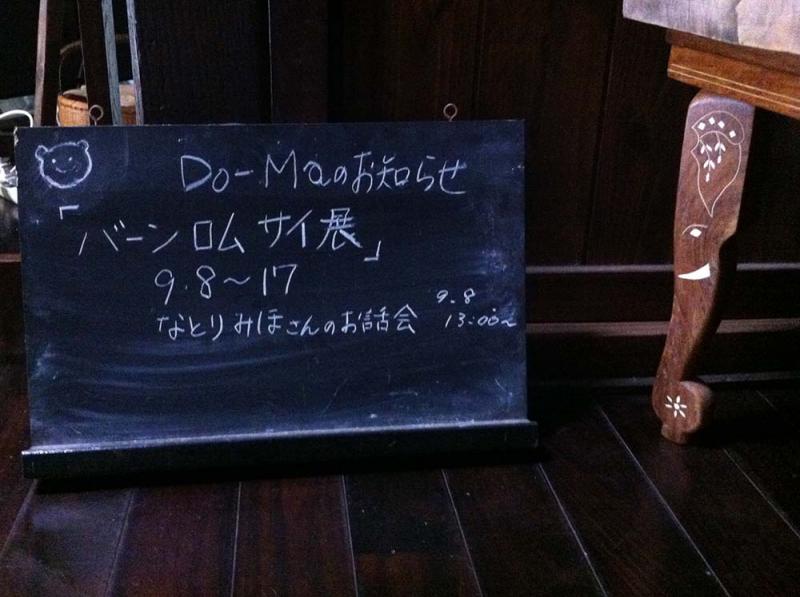 Do-Maのお知らせ
「バーンロムサイ展」
9.8～17
なとりみほさんのお話会 9.8
13:00～